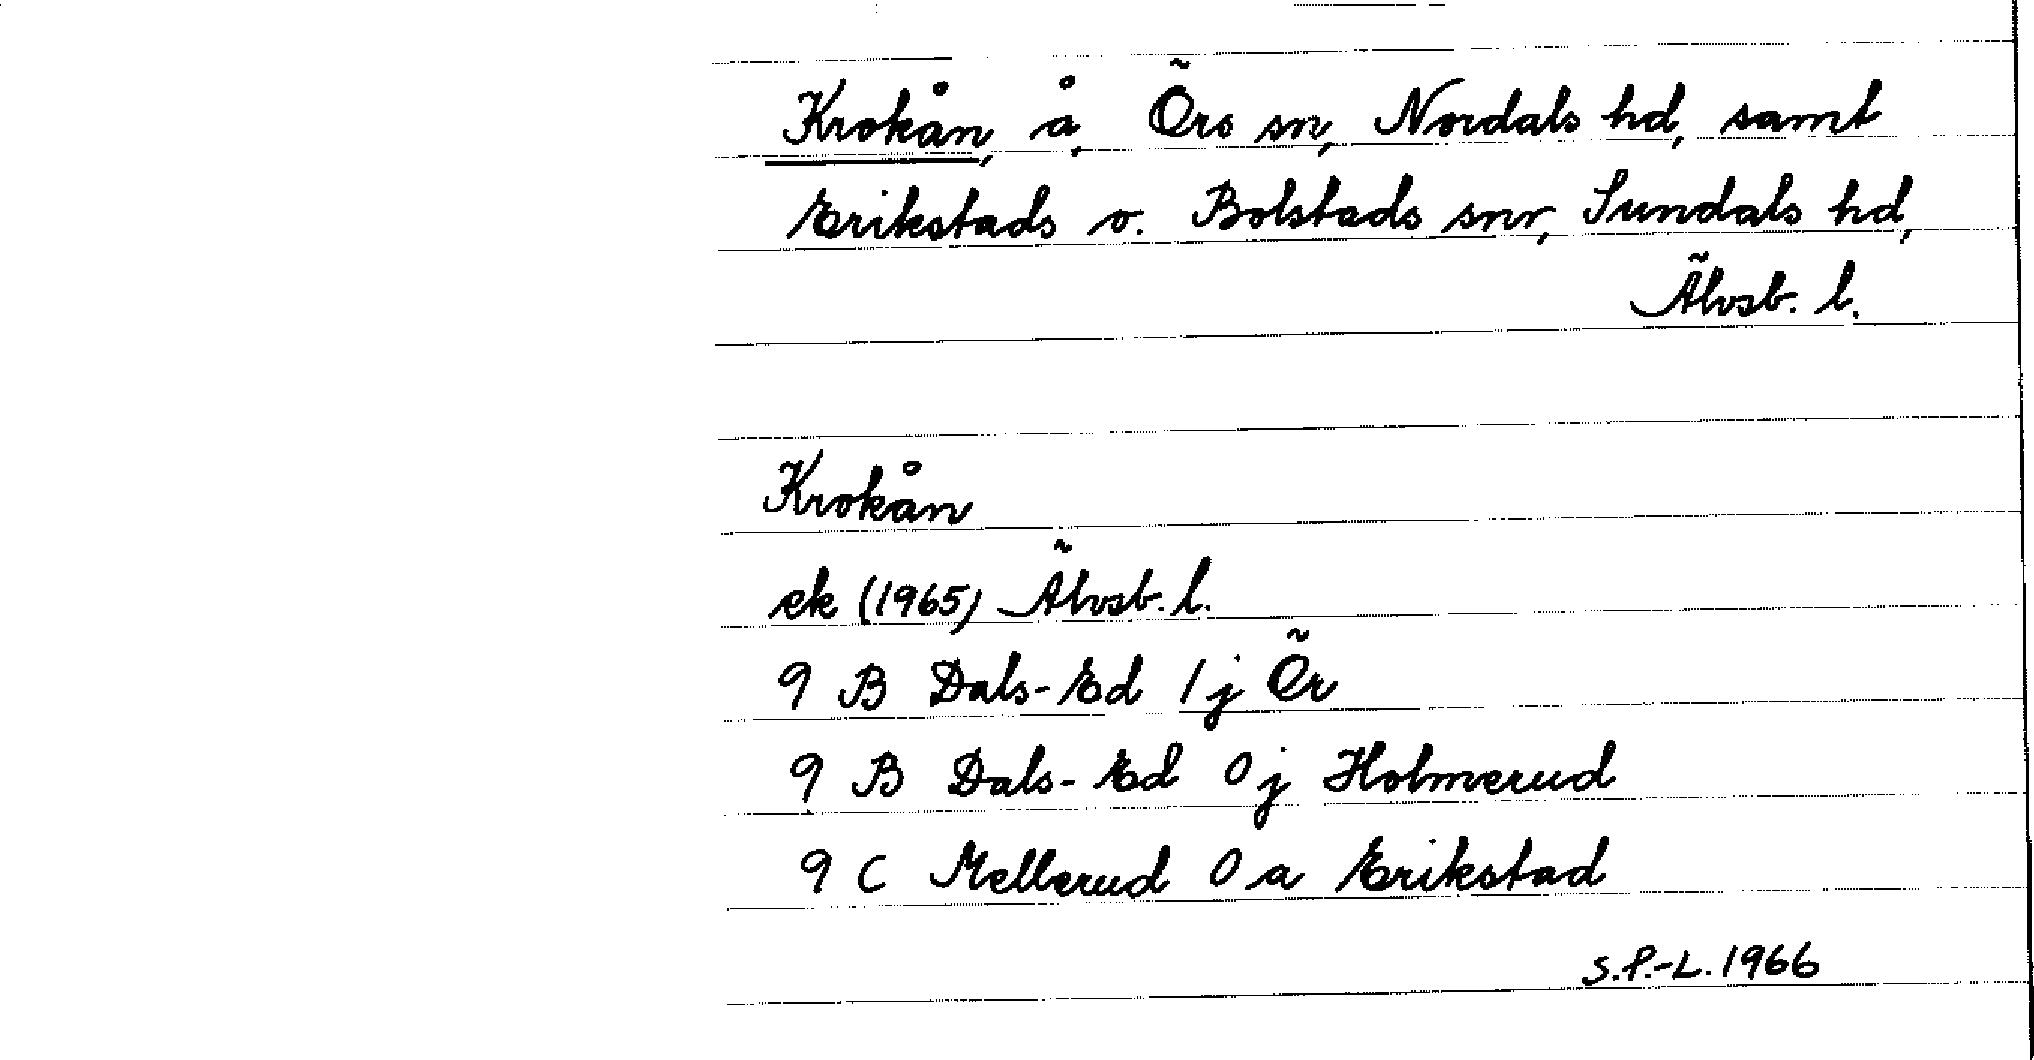 Krokån, å, Örs sn, Nordals hd, samt
Erikstads o. Bolstads snr, Sundals hd,
Älvsb. l.
Krokån
ek (1965) Älvsb. l.
9 B Dals-Ed 1 j Ör
9 B Dals-Ed 0 j Holmerud
9 C Mellerud 0 a Erikstad
S.P.-L. 1966